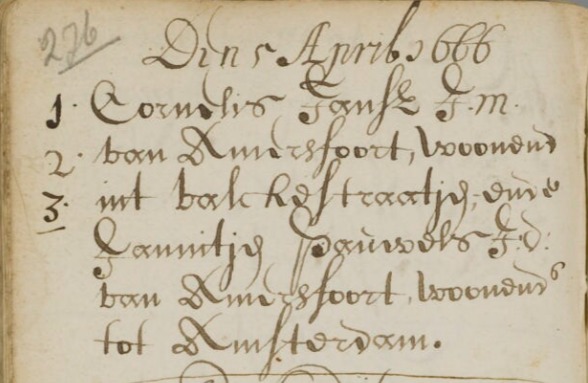 236
Den 5 April 1666
1. Cornelis Jansz J.m.
2. van Amersfoort, woonend
3. int valckestraatje, ende
Jannitje Pauwels J.d.
van Amersfoort, woonende
tot Amsterdam.